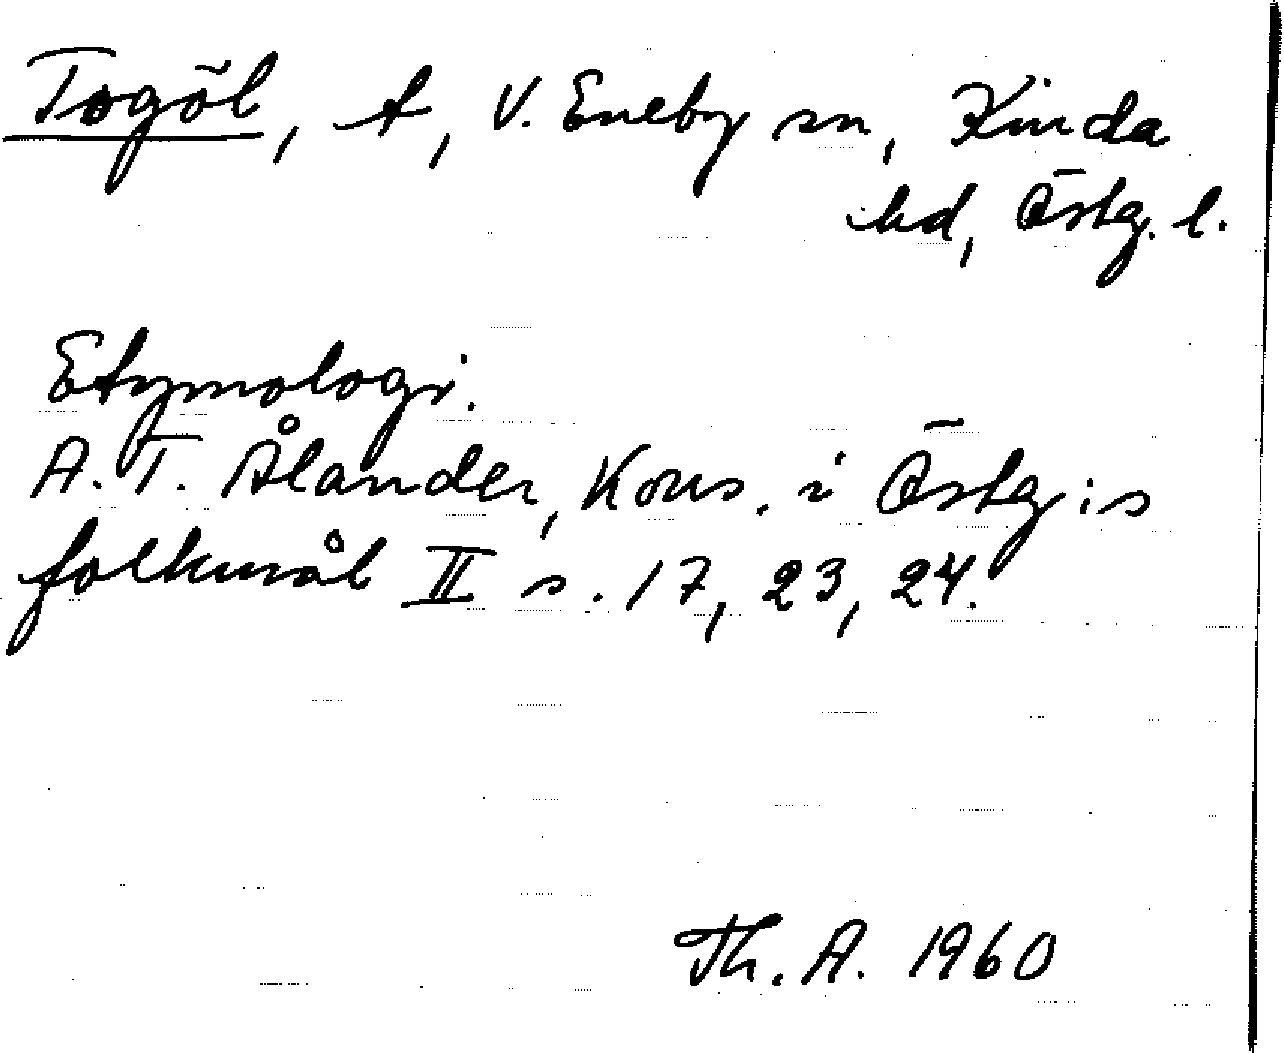 Togöl, t, V. Eneby sn, Kinda
hd, Östg. l.
Etymologi.
A. T. Ålander, Kons. i Östg:s
folkmål II s. 17, 23, 24.
Th. A. 1960